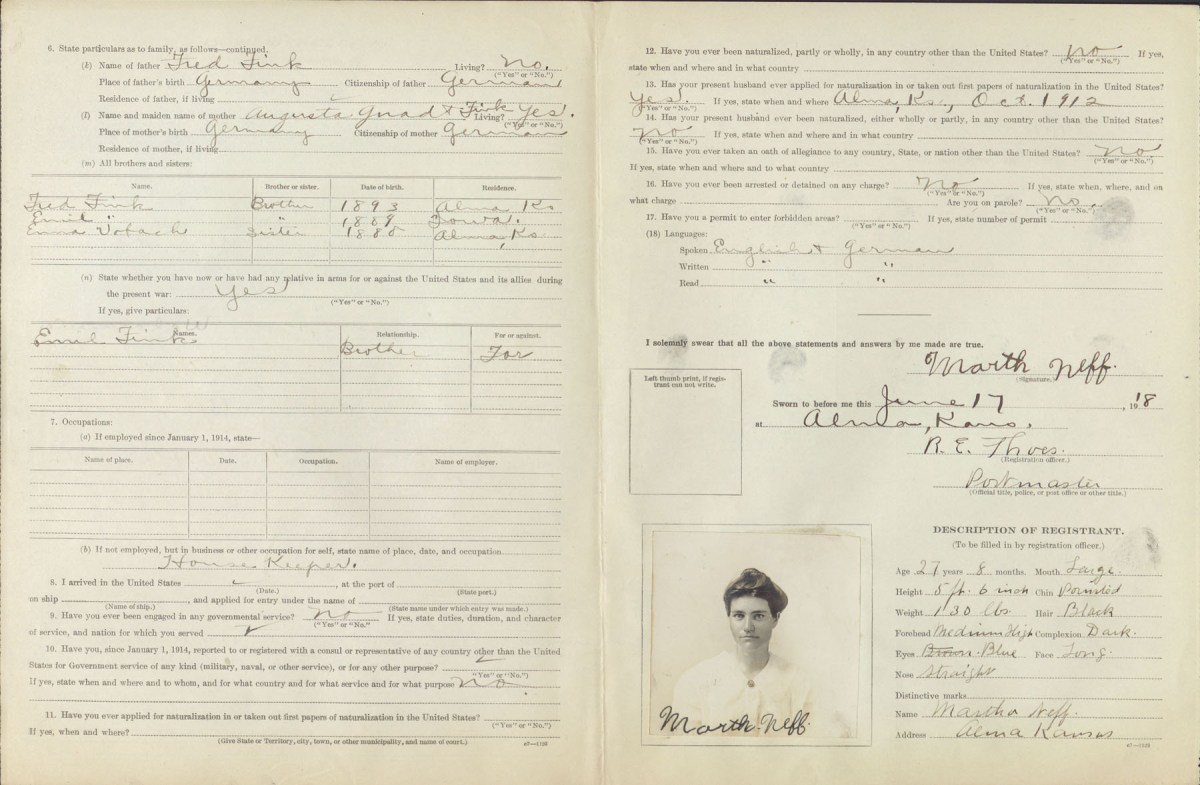 6. State particulars as to family, as follows—continued.
(k) Name of father Fred Fink Living? No.
("Yes" or "No.")
Place of father's birth Germany Citizenship of father German
Residence of father, if living
(l) Name and maiden name of mother Augusta Gnadt Fink Living? Yes.
("Yes" or "No.")
Place of mother's birth Germany Citizenship of mother German
Residence of mother, if living
(m) All brothers and sisters:
Name. Brother or sister. Date of birth. Residence.
Fred Fink Brother 1893 Alma Ks
Emil " " 1889 Iowa.
Emma Vobach Sister 1880 Alma, Ks
(n) State whether you have now or have had any relative in arms for or against the United States and its allies during
the present war: Yes
("Yes" or "No.")
If yes, give particulars:
Names. Relationship. For or against.
Emil Fink Brother For
7. Occupations:
(a) If employed since January 1, 1914, state—
Name of place. Date. Occupation. Name of employer.
(b) If not employed, but in business or other occupation for self, state name of place, date, and occupation.
House Keeper.
8. I arrived in the United States , at the port of
(Date.) (State port.)
on ship , and applied for entry under the name of
(Name of ship.) (State name under which entry was made.)
9. Have you ever been engaged in any governmental service? No If yes, state duties, duration, and character
("Yes" or "No."
of service, and nation for which you served
10. Have you, since January 1, 1914, reported to or registered with a consul or representative of any country other than the United
States for Government service of any kind (military, naval, or other service), or for any other purpose?
("Yes" or "No.")
If yes, state when and where and to whom, and for what country and for what service and for what purpose No
11. Have you ever applied for naturalization or taken out first papers of naturalization in the United States?
("Yes" or "No.")
If yes, when and where?
(Give State or Territory, city, town, or other municipality, and name of court.)
c7—1193
12. Have you ever been naturalized, partly or wholly, in any country other than the United States? No If yes,
("Yes" or "No.")
state when and where and in what country
13. Has your present husband ever applied for naturalization in or taken out first papers of naturalization in the United States?
Yes. If yes, state when and where Alma, Ks., Oct. 1912
("Yes" or "No.")
14. Has your present husband ever been naturalized, either wholly or partly, in any country other than the United States?
No If yes, state when and where and in what country
("Yes" or "No.")
15. Have you ever taken an oath of allegiance to any country, State, or nation other than the United States? No.
("Yes" or "No.")
If yes, state when and where and to what country
16. Have you ever been arrested or detained on any charge? No If yes, state when, where, and on
("Yes" or "No.")
what charge Are you on parole? No.
("Yes" or "No.")
17. Have you a permit to enter forbidden areas? If yes, state number of permit
("Yes" or "No.")
(18) Languages:
Spoken English & German
Written " "
Read " "
I solemnly swear that all the above statements and answers by me made are true.
Marth Neff.
(Signature.)
Left thumb print, if regis-
trant can not write.
Sworn to before me this June 17 , 1918
at Alma, Kans.
R. E. Thoes.
(Registration officer.)
Postmaster
(Official title, police, or post office or other title.)
DESCRIPTION OF REGISTRANT.
(To be filled in by registration officer.)
Age 27 years 8 months. Mouth Large.
Height 5 ft. 6 inch Chin Pointed
Weight 130 lbs. Hair Black
Forehead Medium High Complexion Dark.
Eyes Brown. Blue Face Long.
Nose Straight
Distinctive marks
Name Martha Neff.
Address Alma Kansas
c7—1193
Marth Neff.